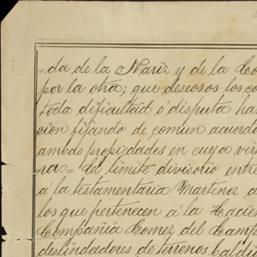 da de la Nariz y de la Co
por la otra; que deseosos los co
toda dificultad ó disputa ha
cion fijando de comun acuerdo
ambas propiedades en cuya vir
ra= El límite divisorio entre
á la testamentaria Martinez a
los que pertenecen á la Hacien
Compañia Gomez del Camp
deslindadores de terrenos baldi